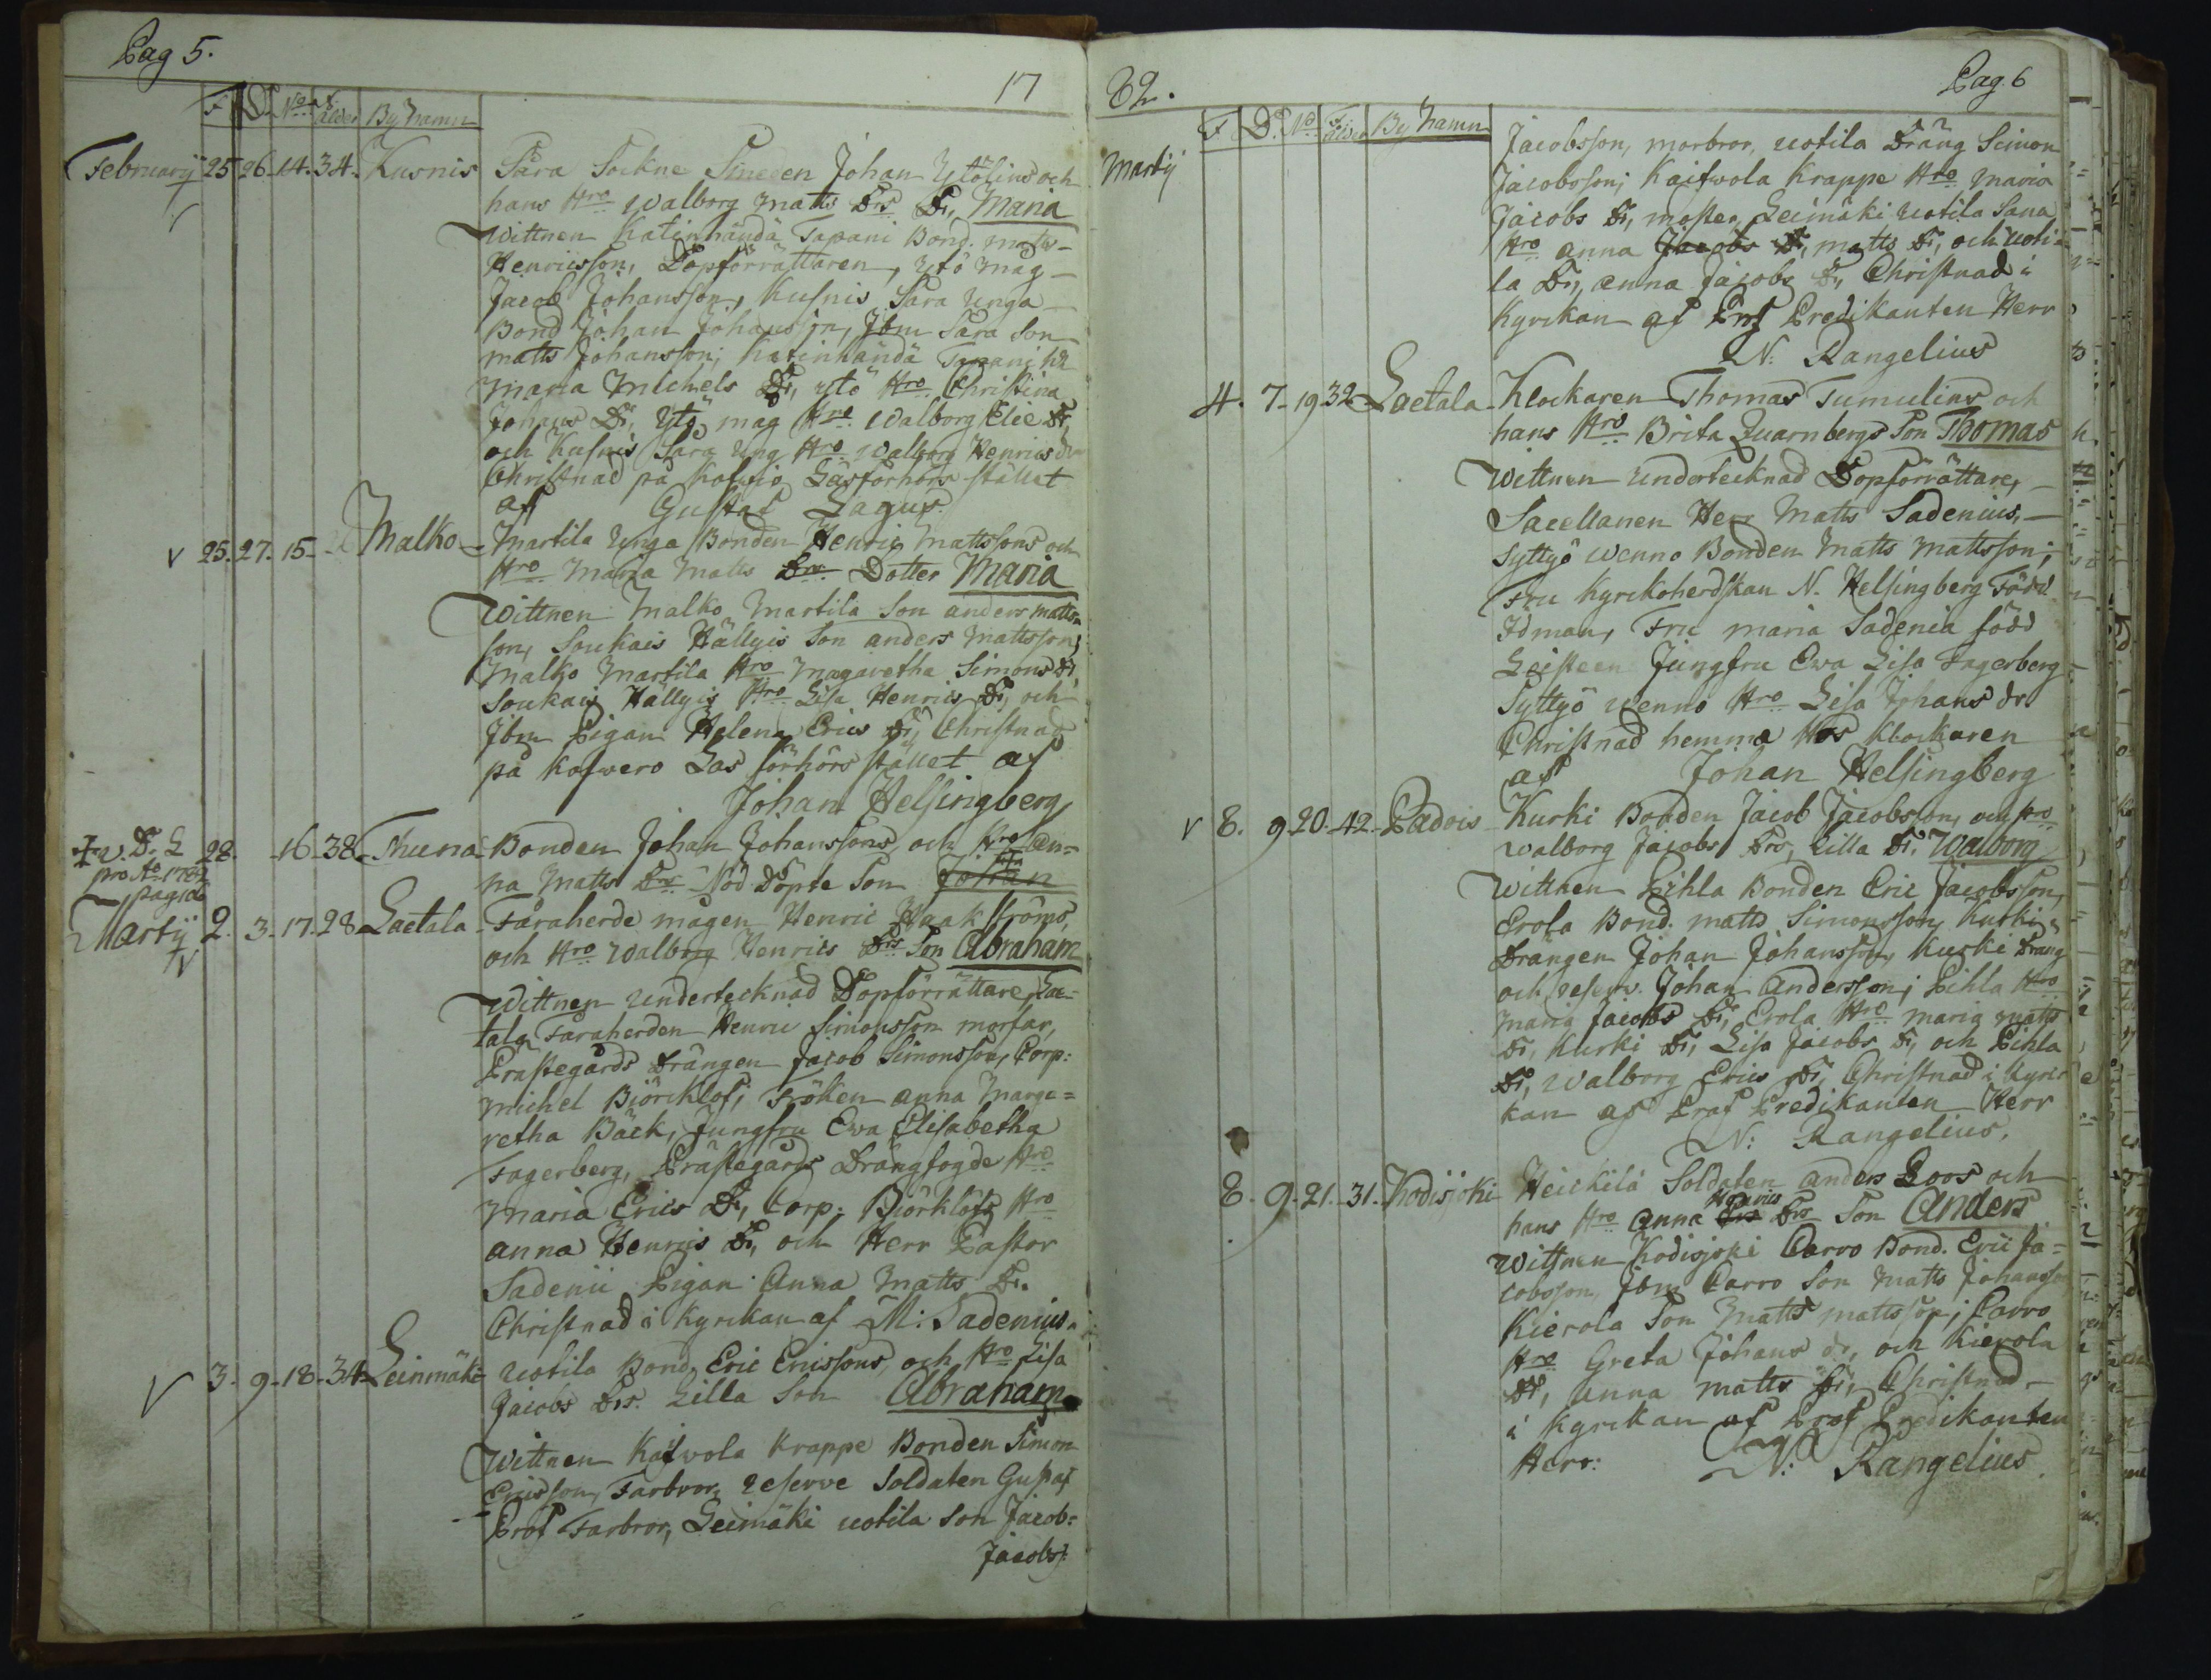 Pag 5.
17
F D. No ålder By Namn
Februarij 25 26 14. 34. Kusnis Sara Sockne Smeden Johan Ytölins och
hans Hro Walborg Matts Drs Dr, Maria
Wittnen Katinhändä Tapani Bond. Matts
Henricsson, Dopförrättaren, Ytö måg
Jacob Johansson, Kusnis Sara Unga
Bond Johan Johansson, Jbm Sara Son
Matts Johansson; Katinhändä Tapani
Maria Michels Dr, Ytö Hro Christina
Johans Dr, Ytö måg Hro Walborg Elie Dr,
och Kusnis Sara Ung Hro Walborg Henrics dr
Christnad på Läsförhörs stället
af Gustaf Lagus.
V 25. 27. 15- Malko - Martila Unga Bonden Henric Mattssons och
Hro Maria Matts Drs Dotter Maria
Wittnen Malko Martila Son anders matts=
son, Soukais Hällyis Son anders Mattsson;
Malko Martila Hro Magaretha Simons Dr,
Soukais Hällyis Hro Lisa Henrics Dr, och
Jbm Pigan Helena Erics Dr, Christnad
på Kofwero Läs förhörs stället af
Johan Helsingberg
28. -16-38- Thuna- Bonden Johan Johanssons och Hro an=
na Matts Drs Nöd Döpte Son Johan
Martij 2. 3-17.28 Laetala - Fåraherde mågen Henric Haak ströms,
och Hro Walborg Henrics Drs Son Abraham
Wittnen Undertecknad Dopförrättare, Lae=
tala Fåraherden Henric Simonsson morfar,
Prästegårds Drängen Jacob Simonsson, Corp:
Michel Biörcklöf; Fröken anna Marga=
retha Bäck, Jungfru Ewa Elisabetha
Fagerberg, Prästegårds Drängfogde Hro
Maria Erics Dr, Corp: Biörklöfs Hro
anna Henrics Dr, och Herr Pastor
Sadenii Pigan Anna Matts Dr.
Christnad i Kyrckan af M: Sadenius.
V 3. 9-18-34- Leinmäki Uotila Bond. Eric Ericssons och Hro Lisa
Jacobs Drs. Lilla Son Abraham
Wittnen Kaifwola Krappe Bonden Simon
Ericsson, Farbror, reserve Soldaten Gustaf
Prof Farbror, Leimäki uotila Son Jacob=
Jacobs:
82.
Pag. 6
F D. No ålder By Namn
Martij
Jacobsson, morbror, uotila Dräng Simon
Jacobsson; Kaifwola Krappe Hro Maria
Jacobs Dr, moster, Leimäki uotila Sara
Hro anna Jacobs Dr, matts Dr, och uoti=
la Dr, anna Jacobs Dr, Christnad i
Kyrckan af Prof Predikanten Herr
N: Rangelius
4. 7-19 32 Laetala - Klockaren Thomas Tumulins och
hans Hro Brita Quarnbergs Son Thomas
Wittnen Undertecknad Dopförrättare,
Sacellanen Herr Matts Sadenius,
Syttyö Wenno Bonden Matts Mattsson;
Fru Kyrckoherdskan N. Helsingberg Född
Idman, Fru Maria Sadenia född
Leisteen Jungfru Ewa Lisa Fagerberg
Syttyö Wenno Hro Lisa Johans dr
Christnad hemma Hos Klockaren
af Johan Helsingberg
V 8. 9-20-42- Padois - Kurki Bonden Jacob Jacobsson, och Hro
Walborg Jacobs Drs, Lilla Dr. Walborg
Wittnen Pihla Bonden Eric Jacobsson,
Erola Bond. matts Simonsson, Kurki
Drängen Johan Johansson, Kurki Dräng
och reserv. Johan Andersson; Pihla Hro
Maria Jacobs Dr, Erola Hro maria matts
Dr, Kurki Dr, Lisa Jacobs Dr, och Pihla
Dr, Walborg Erics Dr, Christnad i Kyrc
kan af Praf Predikanten Herr
N: Rangelius.
8. 9-21-31- Kodisjoki Heickilä Soldaten anders Roos och
Henrics
hans Hro Anna Drs Son Anders
Wittnen Kodisjoki Carro Bond. Eric Ja=
cobsson, Jbm Carro Son Matts Johansson
Kierola Son Matts Mattsson; Carro
Hro Greta Johans dr, och Kierola
Dr, anna matts Dr, Christnad
i Kyrckan af Prof Predikanten
Herr: N: Rangelius